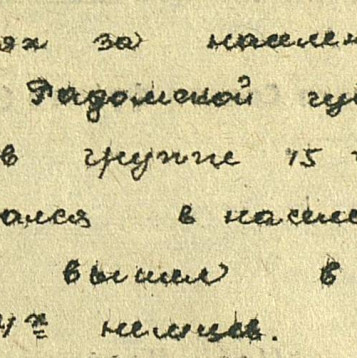 ях за населен
Радомской гу
в группе 15
ался в населе
вышел в
4х немцев.